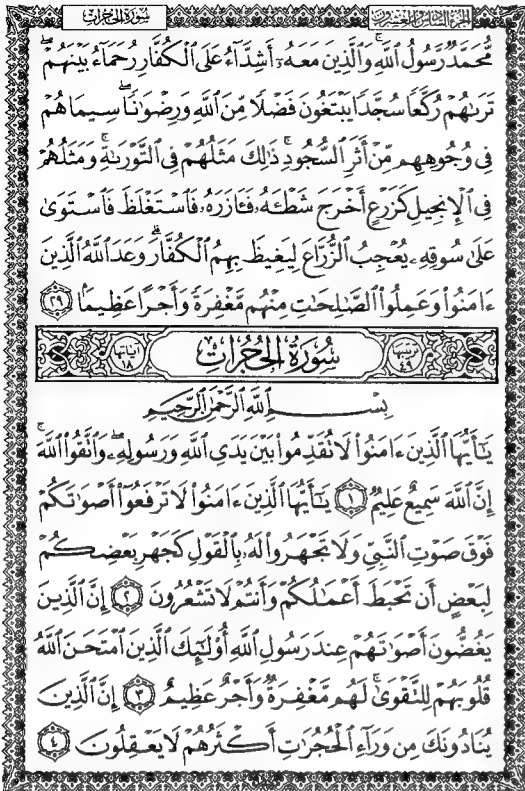 سُورَةُ الحُجُرَاتِ
الجزء السادس والعشرون
مُّحَمَّدٌ رَّسُولُ ٱللَّهِ وَٱلَّذِينَ مَعَهُۥٓ أَشِدَّآءُ عَلَى ٱلۡكُفَّارِ رُحَمَآءُ بَيۡنَهُمۡۖ
تَرَىٰهُمۡ رُكَّعٗا سُجَّدٗا يَبۡتَغُونَ فَضۡلٗا مِّنَ ٱللَّهِ وَرِضۡوَٰنٗاۖ سِيمَاهُمۡ
فِي وُجُوهِهِم مِّنۡ أَثَرِ ٱلسُّجُودِۚ ذَٰلِكَ مَثَلُهُمۡ فِي ٱلتَّوۡرَىٰةِۚ وَمَثَلُهُمۡ
فِي ٱلۡإِنجِيلِ كَزَرۡعٍ أَخۡرَجَ شَطۡـَٔهُۥ فَـَٔازَرَهُۥ فَٱسۡتَغۡلَظَ فَٱسۡتَوَىٰ
عَلَىٰ سُوقِهِۦ يُعۡجِبُ ٱلزُّرَّاعَ لِيَغِيظَ بِهِمُ ٱلۡكُفَّارَۗ وَعَدَ ٱللَّهُ ٱلَّذِينَ
ءَامَنُواْ وَعَمِلُواْ ٱلصَّٰلِحَٰتِ مِنۡهُم مَّغۡفِرَةٗ وَأَجۡرًا عَظِيمَۢا ٢٩
ترتيبها ٤٩ سُورَةُ الحُجُرَاتِ آياتها ١٨
بِسۡمِ ٱللَّهِ ٱلرَّحۡمَٰنِ ٱلرَّحِيمِ
يَٰٓأَيُّهَا ٱلَّذِينَ ءَامَنُواْ لَا تُقَدِّمُواْ بَيۡنَ يَدَيِ ٱللَّهِ وَرَسُولِهِۦۖ وَٱتَّقُواْ ٱللَّهَۚ
إِنَّ ٱللَّهَ سَمِيعٌ عَلِيمٞ ١ يَٰٓأَيُّهَا ٱلَّذِينَ ءَامَنُواْ لَا تَرۡفَعُوٓاْ أَصۡوَٰتَكُمۡ
فَوۡقَ صَوۡتِ ٱلنَّبِيِّ وَلَا تَجۡهَرُواْ لَهُۥ بِٱلۡقَوۡلِ كَجَهۡرِ بَعۡضِكُمۡ
لِبَعۡضٍ أَن تَحۡبَطَ أَعۡمَٰلُكُمۡ وَأَنتُمۡ لَا تَشۡعُرُونَ ٢ إِنَّ ٱلَّذِينَ
يَغُضُّونَ أَصۡوَٰتَهُمۡ عِندَ رَسُولِ ٱللَّهِ أُوْلَٰٓئِكَ ٱلَّذِينَ ٱمۡتَحَنَ ٱللَّهُ
قُلُوبَهُمۡ لِلتَّقۡوَىٰۚ لَهُم مَّغۡفِرَةٞ وَأَجۡرٌ عَظِيمٌ ٣ إِنَّ ٱلَّذِينَ
يُنَادُونَكَ مِن وَرَآءِ ٱلۡحُجُرَٰتِ أَكۡثَرُهُمۡ لَا يَعۡقِلُونَ ٤